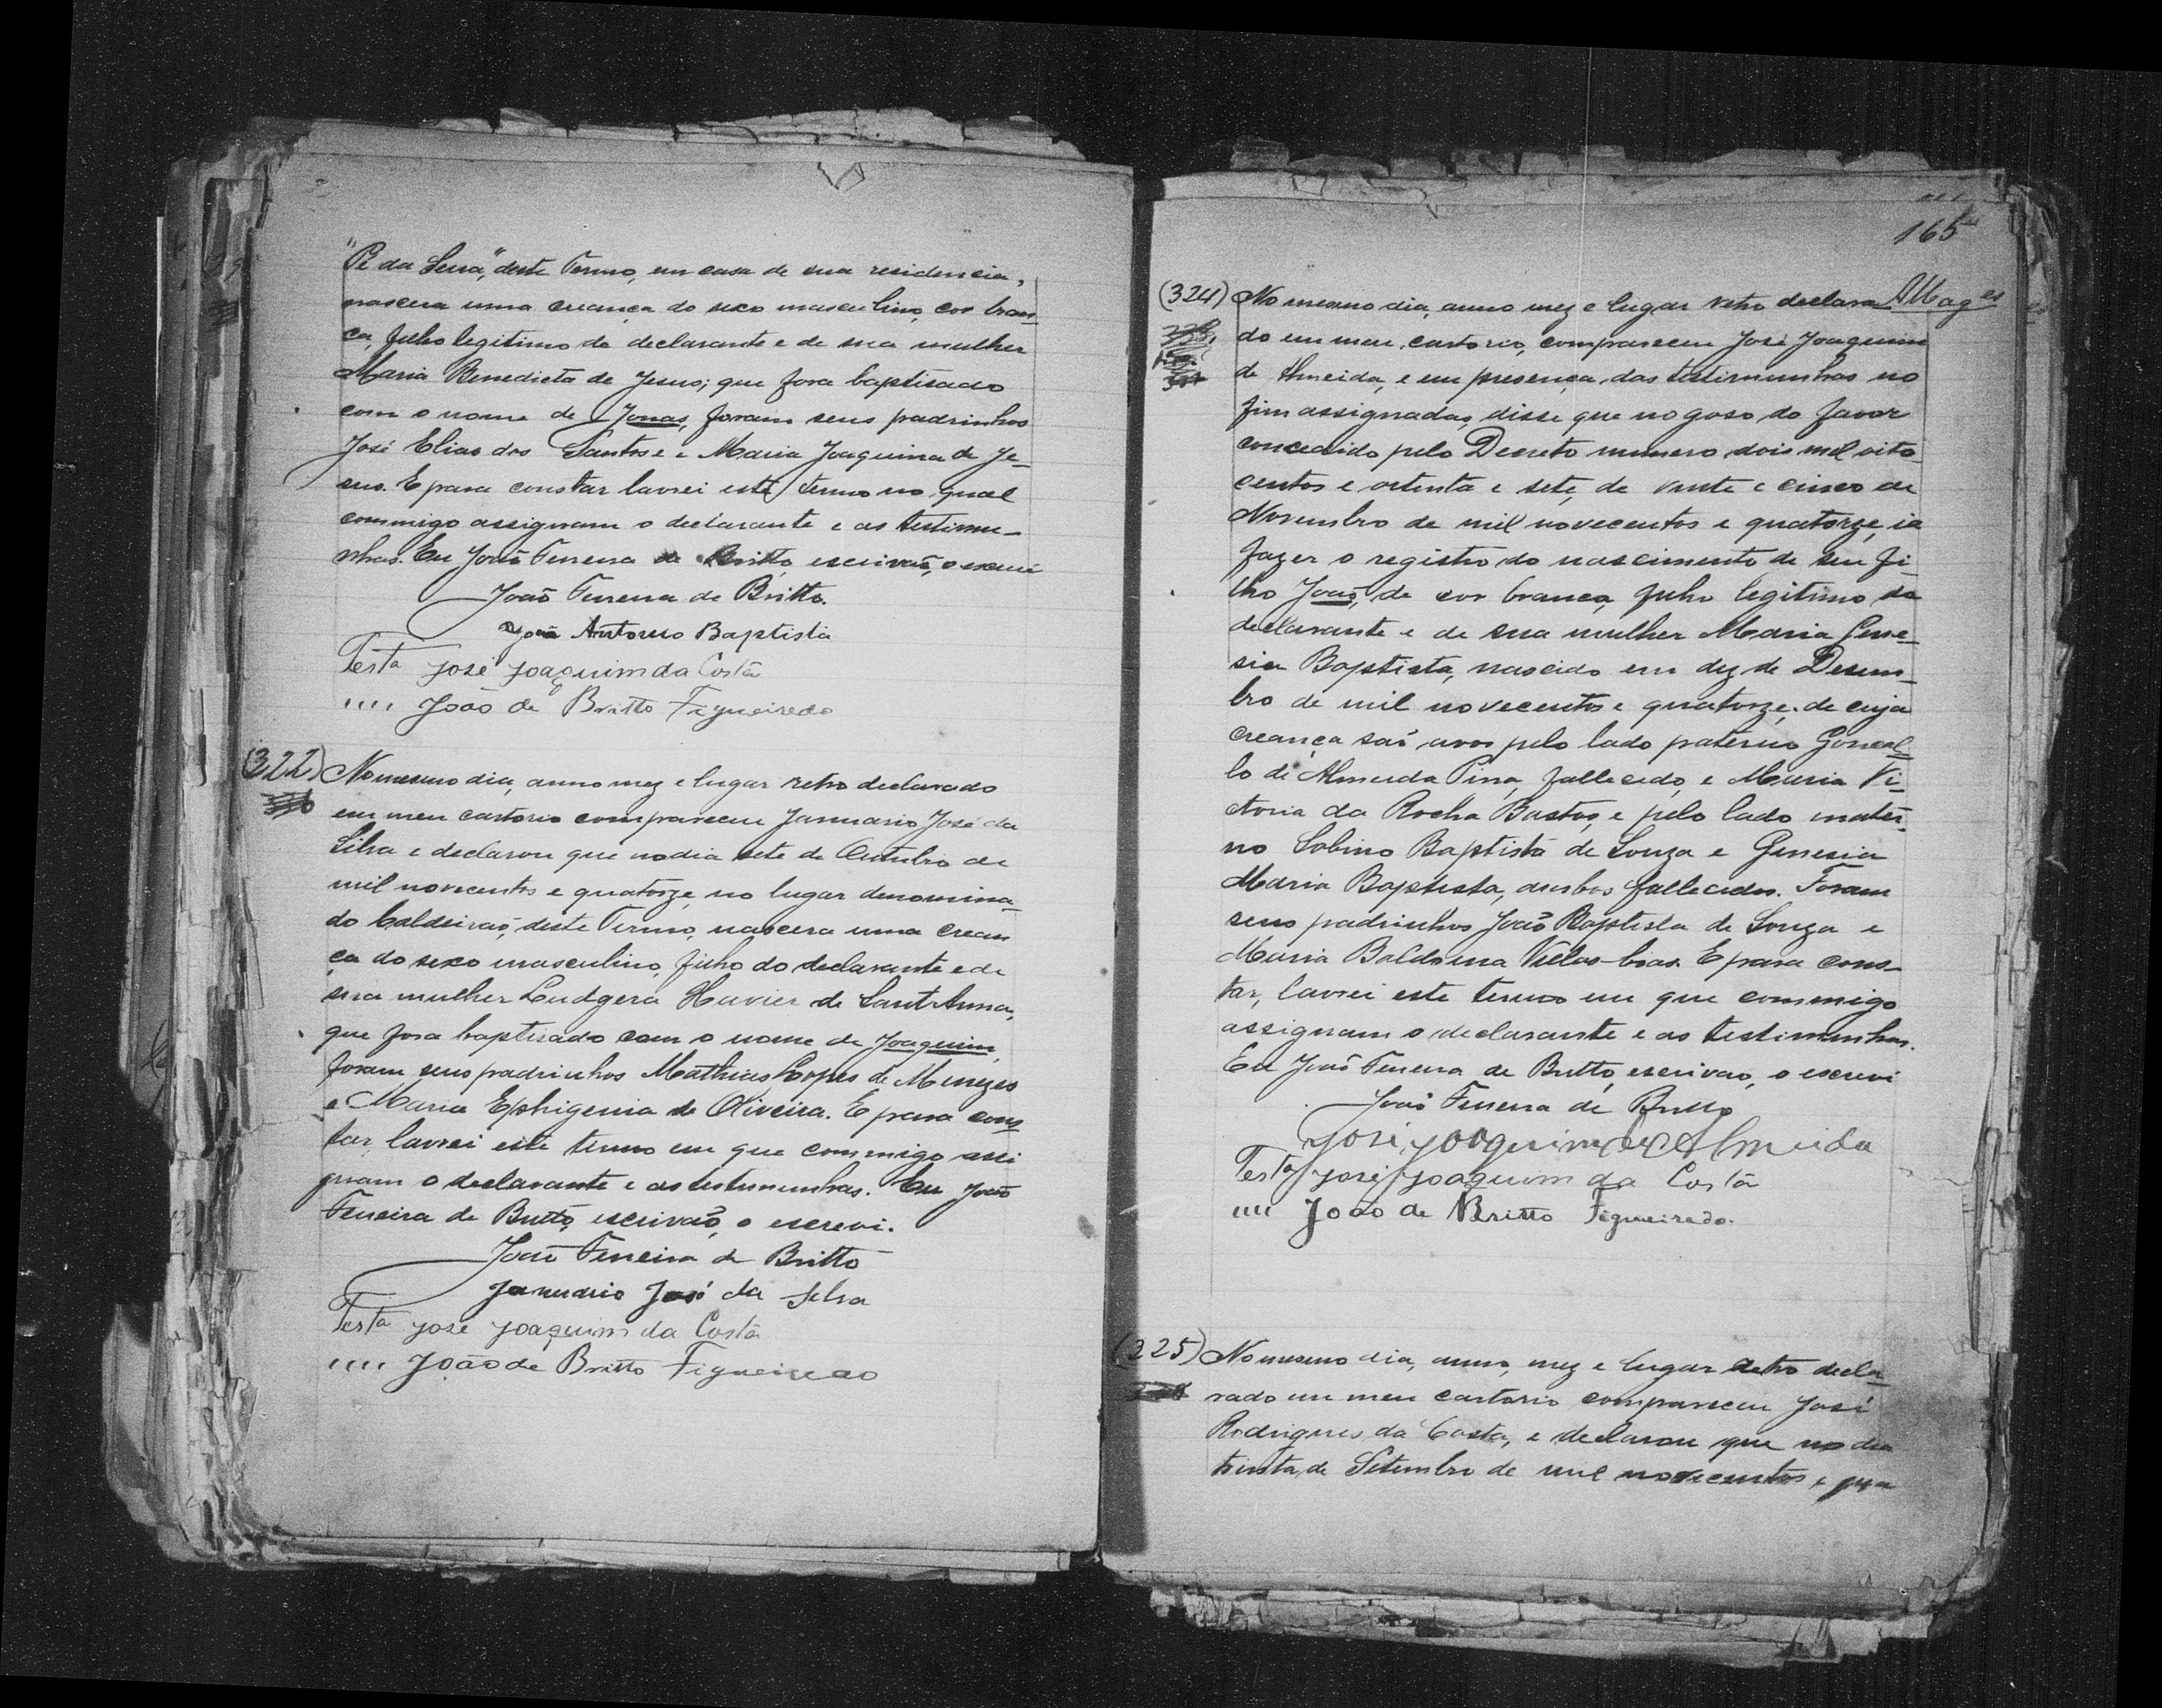 "Pé da Serra," deste Termo, em casa de sua residencia,
nascera uma creança do sexo masculino, cor bran-
ca, filho legitimo do declarante e de sua mulher
Maria Benedicta de Jesus; que fora baptisado
com o nome de Jonas, foram seus padrinhos
José Elias dos Santos e Maria Joaquina de Je-
sus. E para constar lavrei este termo no qual
commigo assignam o declarante e as testimu-
nhas. Eu João Ferreira de Britto, escrivão, o escrevi
João Ferreira de Britto.
João Antonio Baptista
Testa José Joaquim da Costa
'''' João de Britto Figueiredo
(322) No mesmo dia, anno mez e lugar retro declarado
em meu cartorio compareceu Januario José da
Silva e declarou que no dia sete de Outubro de
mil novecentos e quatorze, no lugar denomina-
do Caldeirão, deste Termo, nascera uma crean
ça do sexo masculino, filho do declarante e de
sua mulher Ludgera Xavier de Sant'Anna,
que fora baptisado com o nome de Joaquim,
foram seus padrinhos Mathias Lopes de Menezes
e Maria Ephigenia de Oliveira. E para cons
tar, lavrei este termo em que commigo assi
gnam o declarante e as testimunhas. Eu João
Ferreira de Britto, escrivão, o escrevi.
João Ferreira de Britto
Januario José da Silva
Testa José Joaquim da Costa
'''' João de Britto Figueiredo
165
(324) No mesmo dia, anno mez e lugar retro declara
do em meu cartorio, compareceu José Joaquim
de Almeida, e em presença das testimunhas no
fim assignadas, disse que no goso do favor
concedido pelo Decreto numero dois mil oito
centos e oitenta e sete, de vinte e cinco de
Novembro de mil novecentos e quatorze, ia
fazer o registro do nascimento de seu fi-
lho João, de cor branca, filho legitimo do
declarante e de sua mulher Maria Gene-
sia Baptista, nascido em dez de Desem-
bro de mil novecentos e quatorze; de cuja
creança são avos pelo lado paterno Gonçal-
lo de Almeida Pina, fallecido, e Maria Vi-
ctoria da Rocha Bastos, e pelo lado mater-
no Sabino Baptista de Souza e Genesia
Maria Baptista, ambos fallecidos. Foram
seus padrinhos João Baptista de Souza e
Maria Baldoina Villas-boas. E para cons-
tar, lavrei este termo em que commigo
assignam o declarante e as testimunhas.
Eu João Ferreira de Britto, escrivão, o escrevi
João Ferreira de Britto
José Joaquim de Almeida
Testa José Joaquim da Costa
'''' João de Britto Figueiredo.
(225) No mesmo dia, anno, mez e lugar retro decla-
rado em meu cartorio compareceu José
Rodrigues da Costa, e declarou que no dia
trinta de Setembro de mil novecentos e qua